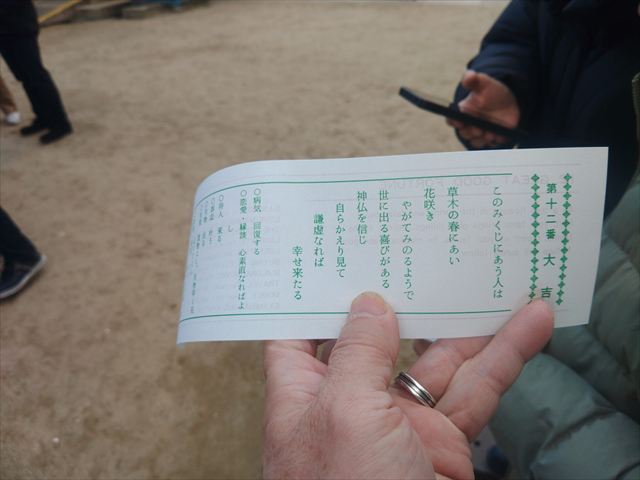 第十二番 大吉
このみくじにあう人は
草木の春にあい
花咲き
やがてみのるようで
世に出る喜びがある
神仏を信じ
自らかえり見て
謙虚なれば
幸せ来たる
○病気 回復する
○恋愛・縁談 心素直なればよ
し
○待人 来る